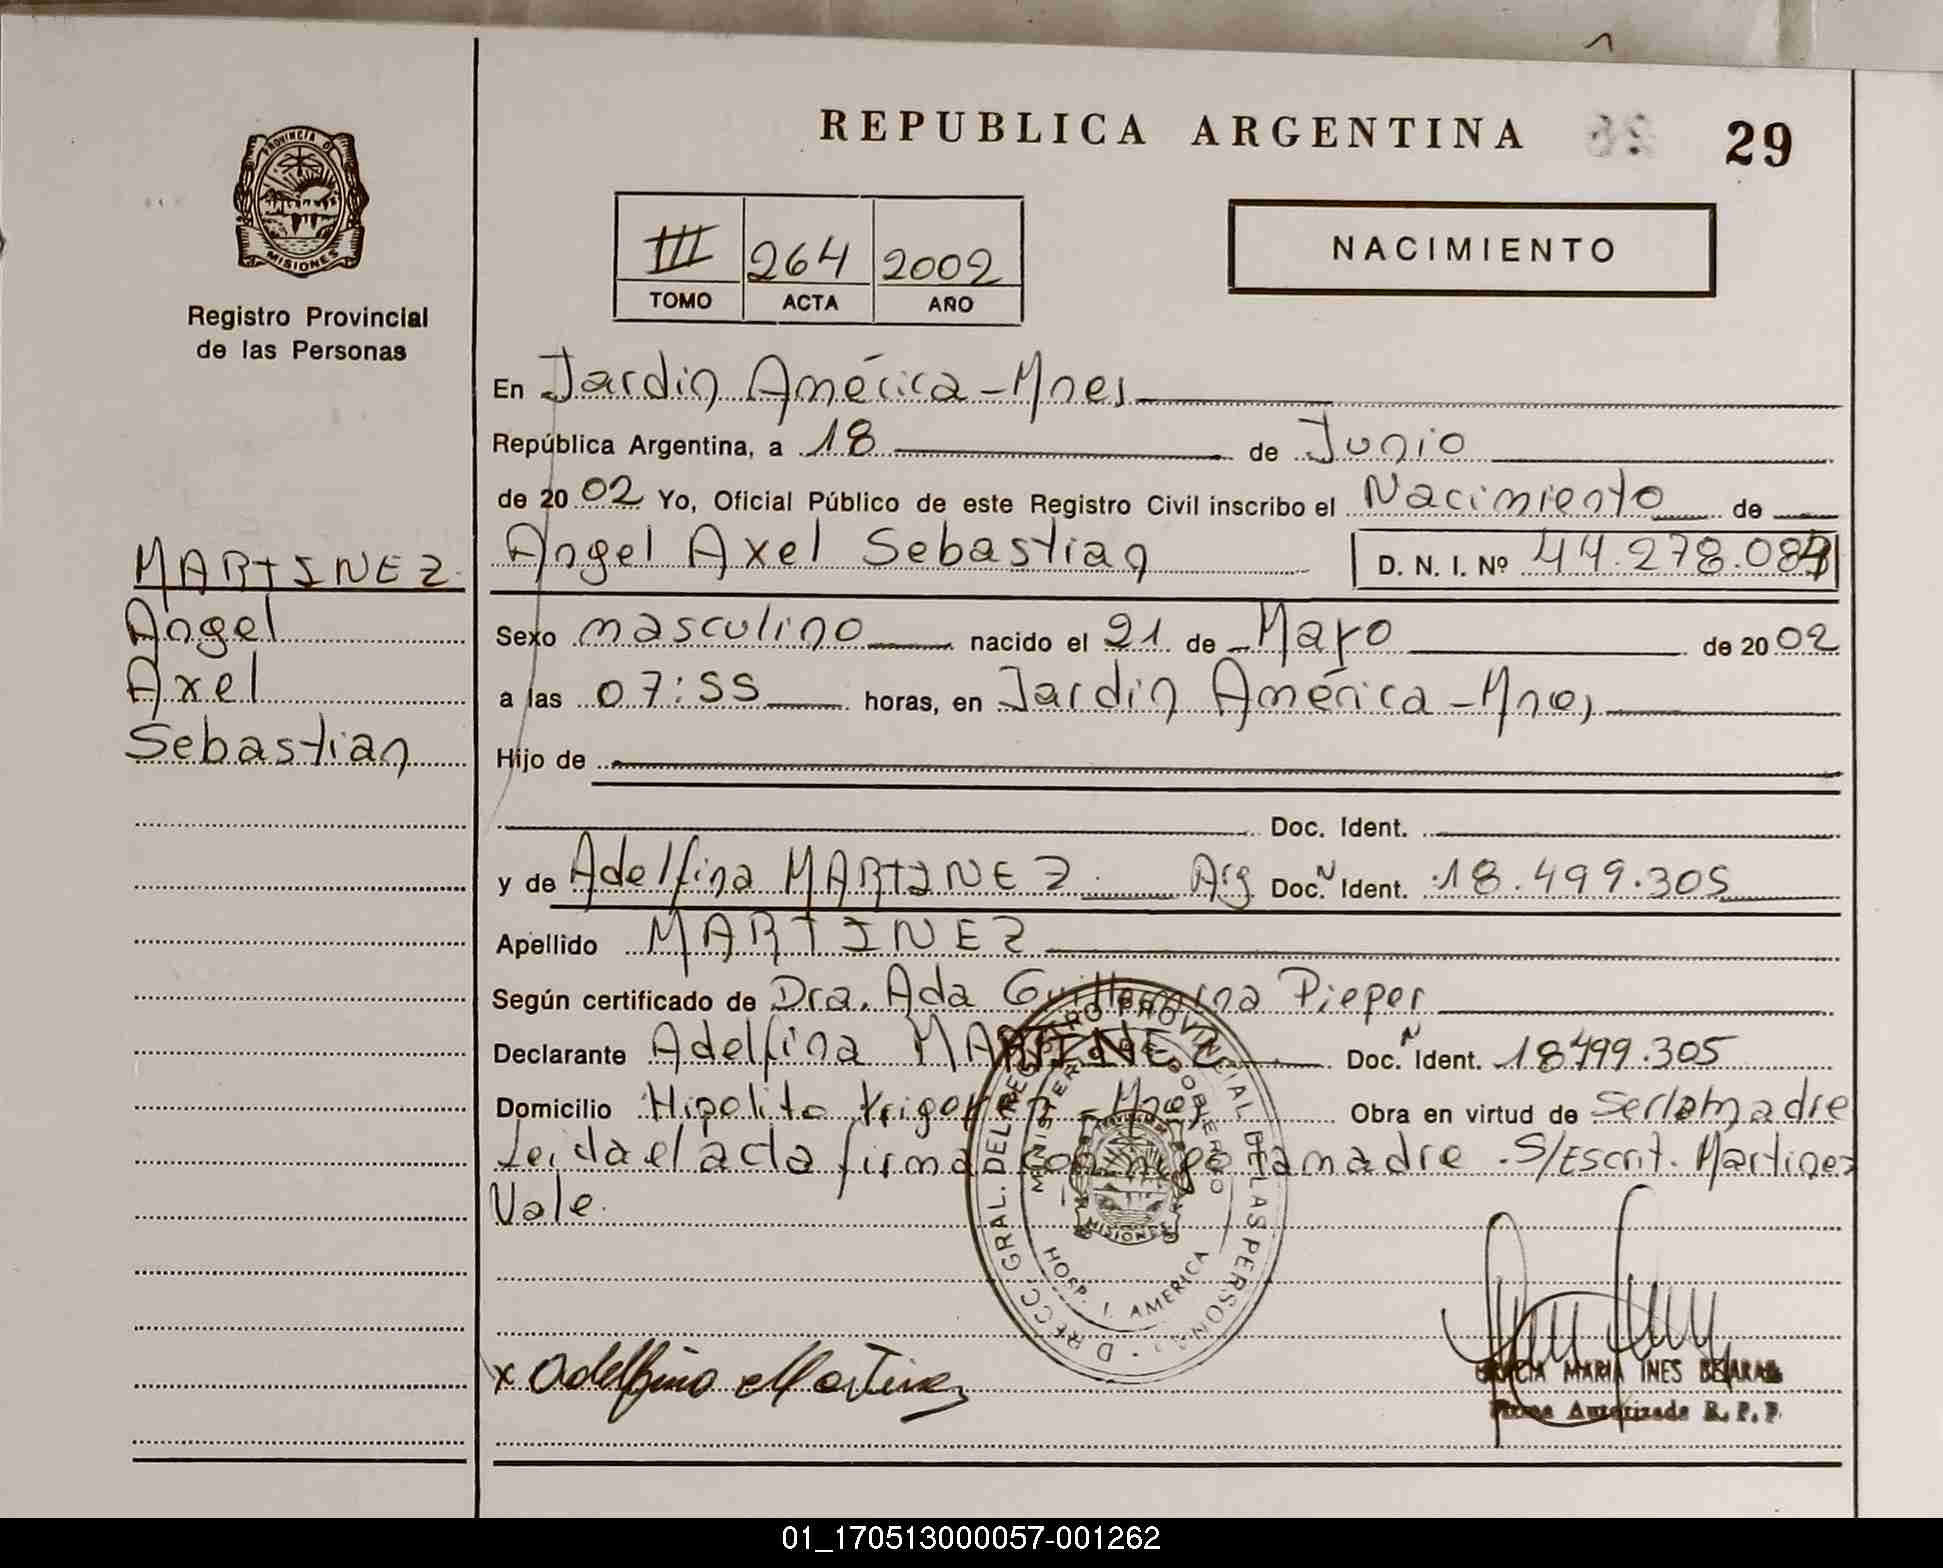 REPUBLICA ARGENTINA 29
PROVINCIA DE
MISIONES
Registro Provincial
de las Personas
III 264 2002
TOMO ACTA AÑO
NACIMIENTO
En Jardin América-Mnes
República Argentina, a 18 de Junio
de 2002 Yo, Oficial Público de este Registro Civil inscribo el Nacimiento de
Angel Axel Sebastian D. N. I. Nº 44.278.08
MARTINEZ
Angel
Axel
Sebastian
Sexo masculino nacido el 21 de Mayo de 2002
a las 07:55 horas, en Jardin América-Mnes
Hijo de
Doc. Ident.
y de Adelfina MARTINEZ Arg Doc. N Ident. 18.499.305
Apellido MARTINEZ
Según certificado de Dra. Ada Guillermina Pieper
Declarante Adelfina MARTINEZ Doc. N Ident. 18499.305
Domicilio Hipolito Yrigoyen-Mnes Obra en virtud de Serlamadre
Leida el acta firma conmigo la madre. S/Escrit. Martinez
Vale.
DIRECC. GRAL. DEL REGISTRO PROVINCIAL DE LAS PERSONAS
MINISTERIO DE GOBIERNO
MISIONES
HOSP. J. AMERICA
x Adelfina Martinez
MARIA INES BEJARANO
Firma Autorizada R. P. P.
01_170513000057-001262